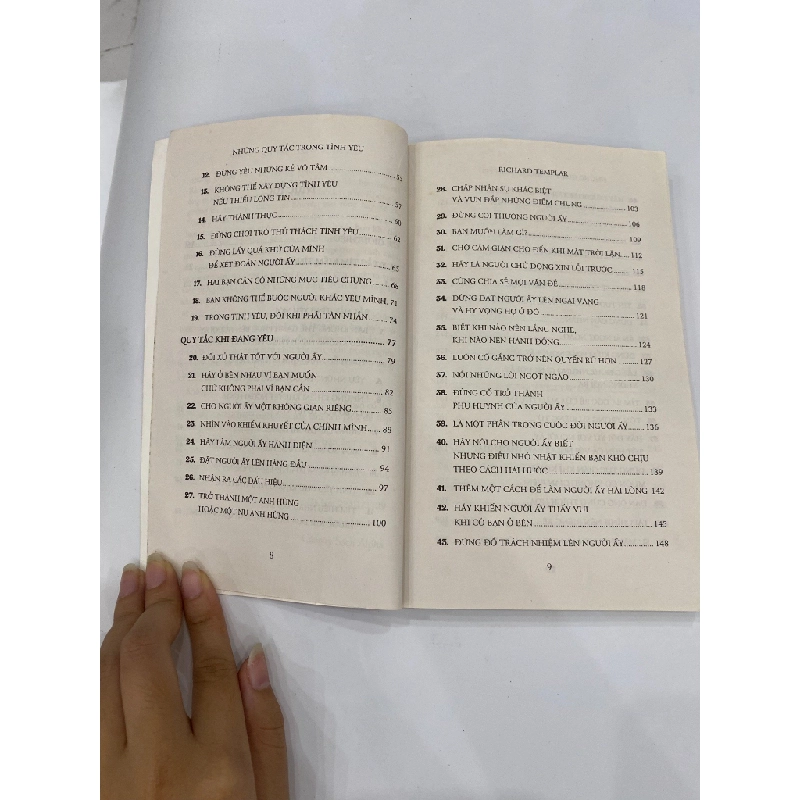 NHỮNG QUY TẮC TRONG TÌNH YÊU
12. ĐỪNG YÊU NHỮNG KẺ VÔ TÂM
13. KHÔNG THỂ XÂY DỰNG TÌNH YÊU
NẾU THIẾU LÒNG TIN 57
14. HÃY THÀNH THỰC 60
15. ĐỪNG CHƠI TRÒ THỬ THÁCH TÌNH YÊU 62
16. ĐỪNG LẤY QUÁ KHỨ CỦA MÌNH
ĐỂ XÉT ĐOÁN NGƯỜI ẤY 65
17. HAI BẠN CẦN CÓ NHỮNG MỤC TIÊU CHUNG 68
18. BẠN KHÔNG THỂ BUỘC NGƯỜI KHÁC YÊU MÌNH 71
19. TRONG TÌNH YÊU, ĐÔI KHI PHẢI TÀN NHẪN 74
QUY TẮC KHI ĐANG YÊU 77
20. ĐỐI XỬ THẬT TỐT VỚI NGƯỜI ẤY 79
21. HÃY Ở BÊN NHAU VÌ BẠN MUỐN
CHỨ KHÔNG PHẢI VÌ BẠN CẦN 82
22. CHO NGƯỜI ẤY MỘT KHÔNG GIAN RIÊNG 85
23. NHÌN VÀO KHIẾM KHUYẾT CỦA CHÍNH MÌNH 88
24. HÃY LÀM NGƯỜI ẤY HÃNH DIỆN 91
25. ĐẶT NGƯỜI ẤY LÊN HÀNG ĐẦU 94
26. NHẬN RA CÁC DẤU HIỆU 97
27. TRỞ THÀNH MỘT ANH HÙNG
HOẶC MỘT NỮ ANH HÙNG 100
8
RICHARD TEMPLAR
28. CHẤP NHẬN SỰ KHÁC BIỆT
VÀ VUN ĐẮP NHỮNG ĐIỂM CHUNG 103
29. ĐỪNG COI THƯỜNG NGƯỜI ẤY 106
30. BẠN MUỐN LÀM GÌ? 109
31. CHỚ CẦM GIẬN CHO ĐẾN KHI MẶT TRỜI LẶN 112
32. HÃY LÀ NGƯỜI CHỦ ĐỘNG XIN LỖI TRƯỚC 115
33. CÙNG CHIA SẺ MỌI VẤN ĐỀ 118
34. ĐỪNG ĐẶT NGƯỜI ẤY LÊN NGAI VÀNG
VÀ HY VỌNG HỌ Ở ĐÓ 121
35. BIẾT KHI NÀO NÊN LẮNG NGHE,
KHI NÀO NÊN HÀNH ĐỘNG 124
36. LUÔN CỐ GẮNG TRỞ NÊN QUYẾN RŨ HƠN 127
37. NÓI NHỮNG LỜI NGỌT NGÀO 130
38. ĐỪNG CỐ TRỞ THÀNH
PHỤ HUYNH CỦA NGƯỜI ẤY 133
39. LÀ MỘT PHẦN TRONG CUỘC ĐỜI NGƯỜI ẤY 136
40. HÃY NÓI CHO NGƯỜI ẤY BIẾT
NHỮNG ĐIỀU NHỎ NHẶT KHIẾN BẠN KHÓ CHỊU
THEO CÁCH HÀI HƯỚC 139
41. THÊM MỘT CÁCH ĐỂ LÀM NGƯỜI ẤY HÀI LÒNG 142
42. HÃY KHIẾN NGƯỜI ẤY THẤY VUI
KHI CÓ BẠN Ở BÊN 145
43. ĐỪNG ĐỔ TRÁCH NHIỆM LÊN NGƯỜI ẤY 148
9